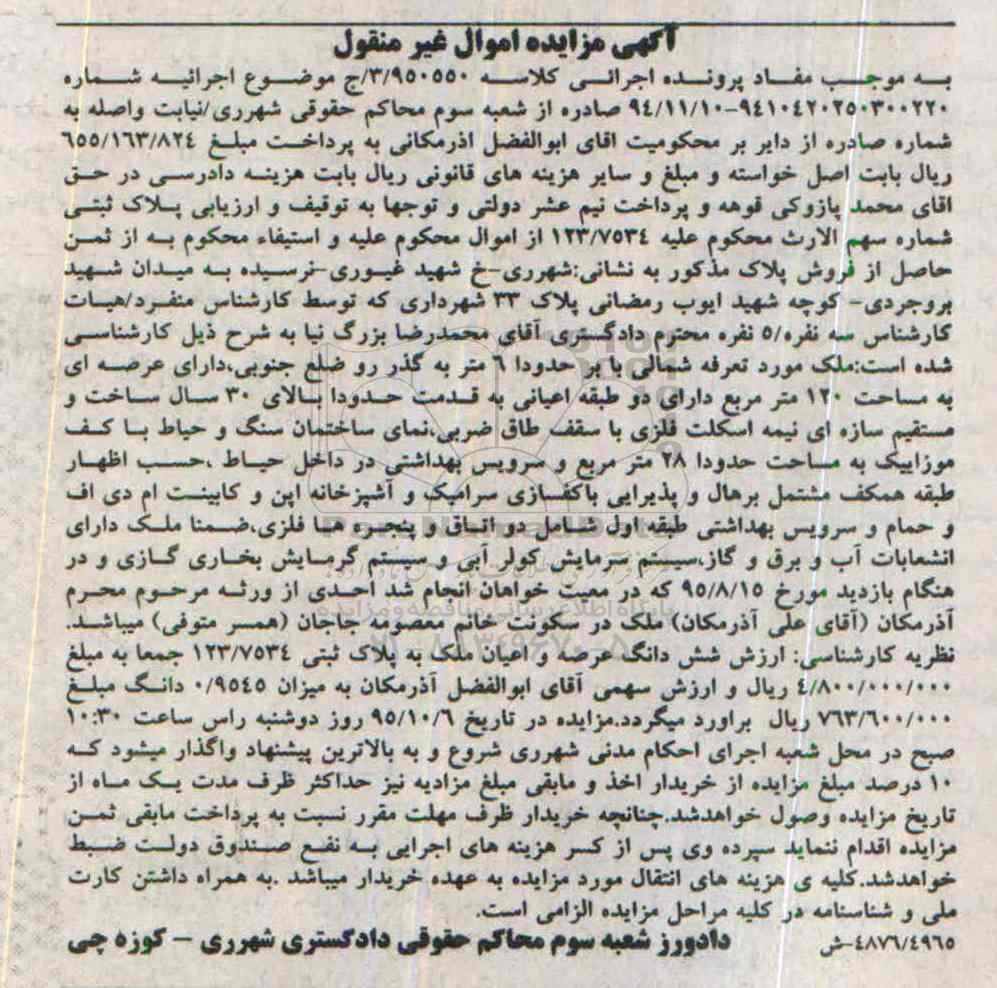 آگهی مزایده اموال غیر منقول
به موجب مفاد پرونده اجرائی کلاسه ۳/۹۵۰۵۵۰/ج موضوع اجرائیه شماره
۹۴۱۰۴۲۰۲۵۰۳۰۰۲۲۰-۹۴/۱۱/۱۰ صادره از شعبه سوم محاکم حقوقی شهرری/نیابت واصله به
شماره صادره از دایر بر محکومیت اقای ابوالفضل اذرمکانی به پرداخت مبلغ ۶۵۵/۱۶۳/۸۲۴
ریال بابت اصل خواسته و مبلغ و سایر هزینه های قانونی ریال بابت هزینه دادرسی در حق
اقای محمد پازوکی قوهه و پرداخت نیم عشر دولتی و توجها به توقیف و ارزیابی پلاک ثبتی
شماره سهم الارث محکوم علیه ۱۲۳/۷۵۳۴ از اموال محکوم علیه و استیفاء محکوم به از ثمن
حاصل از فروش پلاک مذکور به نشانی:شهرری-خ شهید غیوری-نرسیده به میدان شهید
بروجردی- کوچه شهید ایوب رمضانی پلاک ۳۳ شهرداری که توسط کارشناس منفرد/هیات
کارشناس سه نفره/۵ نفره محترم دادگستری آقای محمدرضا بزرگ نیا به شرح ذیل کارشناسی
شده است:ملک مورد تعرفه شمالی با بر حدودا ۶ متر به گذر رو ضلع جنوبی،دارای عرصه ای
به مساحت ۱۲۰ متر مربع دارای دو طبقه اعیانی به قدمت حدودا بالای ۳۰ سال ساخت و
مستقیم سازه ای نیمه اسکلت فلزی با سقف طاق ضربی،نمای ساختمان سنگ و حیاط با کف
موزاییک به مساحت حدودا ۲۸ متر مربع و سرویس بهداشتی در داخل حیاط ،حسب اظهار
طبقه همکف مشتمل برهال و پذیرایی باکفسازی سرامیک و آشپزخانه اپن و کابینت ام دی اف
و حمام و سرویس بهداشتی طبقه اول شامل دو اتاق و پنجره ها فلزی،ضمنا ملک دارای
انشعابات آب و برق و گاز،سیستم سرمایش کولر آبی و سیستم گرمایش بخاری گازی و در
هنگام بازدید مورخ ۹۵/۸/۱۵ که در معیت خواهان انجام شد احدی از ورثه مرحوم محرم
آذرمکان (آقای علی آذرمکان) ملک در سکونت خانم معصومه جاجان (همسر متوفی) میباشد.
نظریه کارشناسی: ارزش شش دانگ عرصه و اعیان ملک به پلاک ثبتی ۱۲۳/۷۵۳۴ جمعا به مبلغ
۴/۸۰۰/۰۰۰/۰۰۰ ریال و ارزش سهمی آقای ابوالفضل آذرمکان به میزان ۰/۹۵۴۵ دانگ مبلغ
۷۶۳/۶۰۰/۰۰۰ ریال براورد میگردد.مزایده در تاریخ ۹۵/۱۰/۶ روز دوشنبه راس ساعت ۱۰:۳۰
صبح در محل شعبه اجرای احکام مدنی شهرری شروع و به بالاترین پیشنهاد واگذار میشود که
۱۰ درصد مبلغ مزایده از خریدار اخذ و مابقی مبلغ مزادیه نیز حداکثر ظرف مدت یک ماه از
تاریخ مزایده وصول خواهدشد.چنانچه خریدار ظرف مهلت مقرر نسبت به پرداخت مابقی ثمن
مزایده اقدام ننماید سپرده وی پس از کسر هزینه های اجرایی به نفع صندوق دولت ضبط
خواهدشد.کلیه ی هزینه های انتقال مورد مزایده به عهده خریدار میباشد .به همراه داشتن کارت
ملی و شناسنامه در کلیه مراحل مزایده الزامی است.
۴۸۷۶/۴۹۶۵-ش دادورز شعبه سوم محاکم حقوقی دادگستری شهرری - کوزه چی